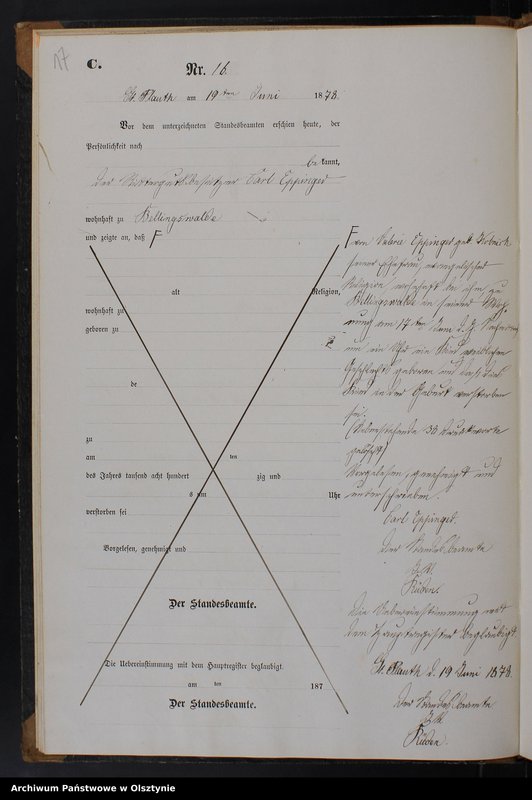 17
C.
Nr. 16.
Gr. Plauth am 19ten Juni 1878.
Vor dem unterzeichneten Standesbeamten erschien heute, der
Persönlichkeit nach
be kannt,
der Rittergutsbesitzer Carl Eppinger
wohnhaft zu Bellingswalde
und zeigte an, daß F
F von Valerie Eppinger geb.
seiner Ehefrau, evangelischer
Religion wohnhaft bei ihm zu
Bellingswalde in seiner Woh-
nung am 17ten dem d. J. Nachmittag
um ein Uhr ein Kind weiblichen
Geschlechts geboren und daß dies
Kind in der Geburt verstorben
sei.
(Nebenstehende 38 Druckworte
gelöscht)
Vorgelesen, genehmigt und
unterschrieben.
Carl Eppinger.
Der Standesbeamte
J. V.
alt Religion,
wohnhaft zu
geboren zu
de
zu
am ten
des Jahres tausend acht hundert zig und
s um Uhr
verstorben sei
Vorgelesen, genehmigt und
Der Standesbeamte.
Die Uebereinstimmung mit
dem Hauptregister beglaubigt.
Gr. Plauth d. 19 Juni 1878.
Der Standesbeamte
J. V.
Die Uebereinstimmung mit dem Hauptregister beglaubigt
am ten 187
Der Standesbeamte.
Archiwum Państwowe w Olsztynie